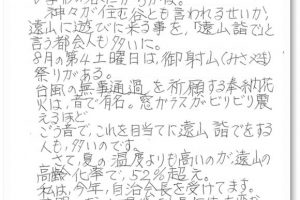 神々が住む谷とも言われるせいか、
遠山に遊びに来る事を、「遠山詣で」と
言う都会人も多いに。
8月の第4土曜日は、御射山(みさやま)
祭りがある。
台風の無事通過を祈願する奉納花
火は、音で有名。窓ガラスがビリビリ震
えるほど
ごう音で、これを目当てに遠山詣でをする
人も、多いのです。
さて、夏の温度よりも高いのが遠山の
高齢化率で、52%超え。
私は、今年、自治会長を受けてます。